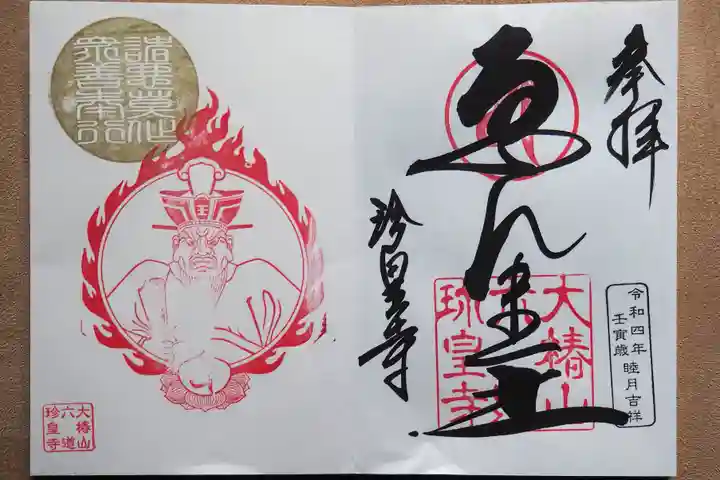 奉拝
ゑんま王
珍皇寺
大椿山
六道
珍皇寺
令和四年
壬寅歳 睦月吉祥
諸惡莫作
衆善奉行
王
大椿山
六道
珍皇寺